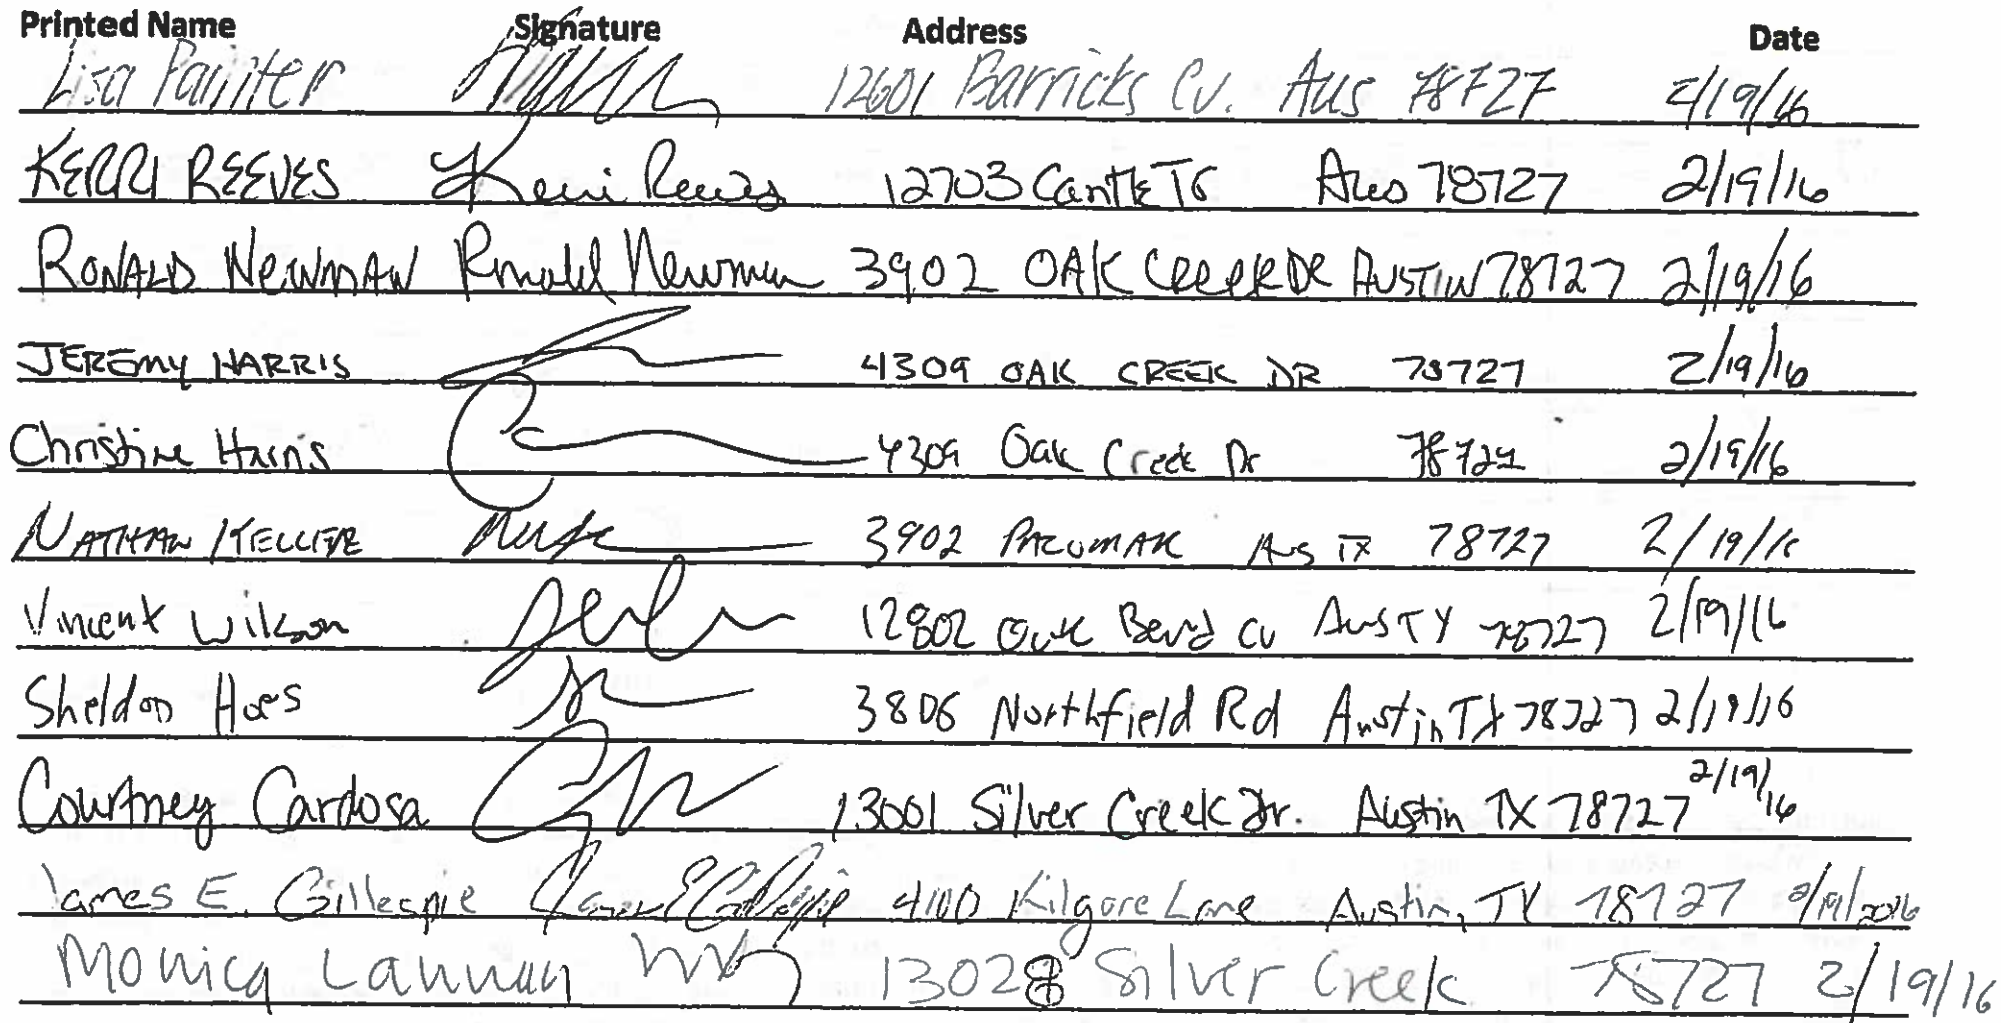 Printed Name Signature Address Date
Lisa Painter 12601 Barricks Cv. Aus 78727 2/19/16
KERRI REEVES Kerri Reeves 12703 Cantle Tr Aus 78727 2/19/16
RONALD NEWMAN Ronald Newman 3902 OAK CREEK DR AUSTIN 78727 2/19/16
JEREMY HARRIS 4309 OAK CREEK DR 78727 2/19/16
Christine Harris 4309 Oak Creek Dr 78727 2/19/16
NATHAN KELLER 3902 AUS TX 78727 2/19/16
Vincent Wilson 12802 Oak Bend Cv Aus TX 78727 2/19/16
Sheldon 3806 Northfield Rd Austin TX 78727 2/19/16
Courtney Cardosa 13001 Silver Creek Dr. Austin TX 78727 2/19/16
James E. Gillespie James E Gillespie 4100 Kilgore Lane Austin, TX 78727 2/19/2016
Monica Lannan Silver Creek 78727 2/19/16